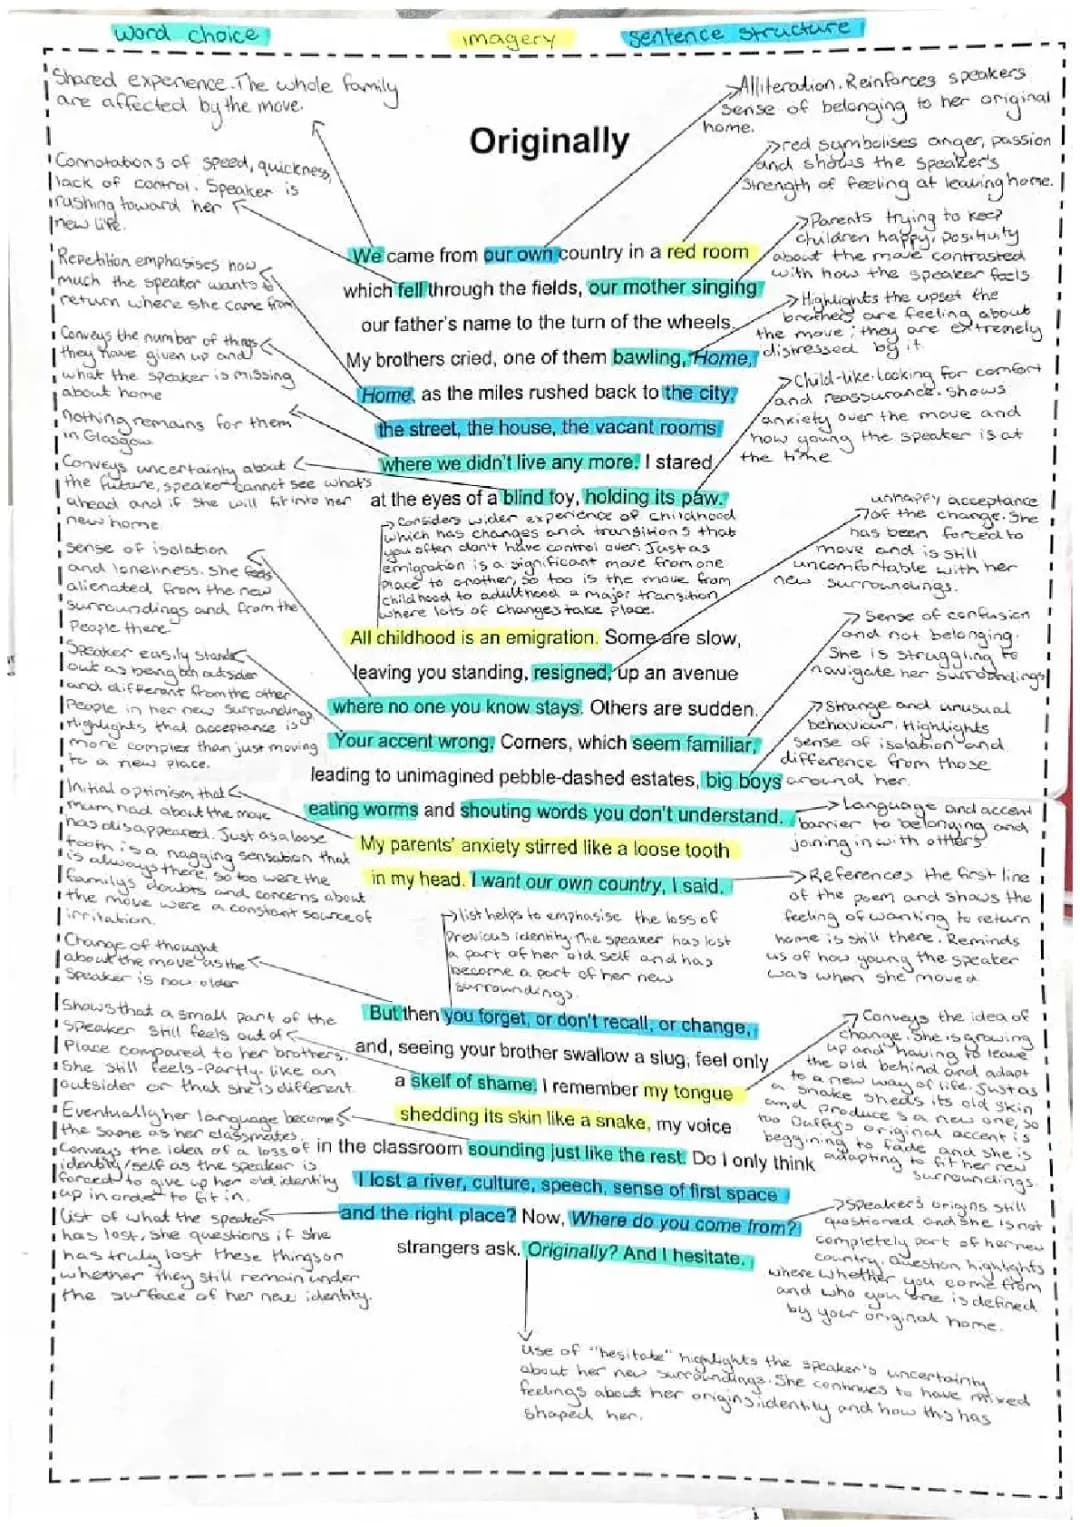 word choice
imagery
sentence structure
Shared experience. The whole family
are affected by the move.
Alliteration. Reinforces speakers
sense of belonging to her original
home.
Originally
red symbolises anger, passion
and shows the speaker's
strength of feeling at leaving home.
Connotations of speed, quickness,
lack of control. Speaker is
rushing toward her
new life.
Parents trying to keep
children happy, positivity
about the move contrasted
with how the speaker feels
Repetition emphasises how
much the speaker wants to
return where she came from
Highlights the upset the
brothers are feeling about
the move; they are extremely
distressed by it
Conveys the number of things
they have given up and
what the speaker is missing
about home
Child-like. Looking for comfort
and reassurance. Shows
anxiety over the move and
how young the speaker is at
the time
nothing remains for them
in Glasgow
Conveys uncertainty about
the future, speaker cannot see what's
ahead and if she will fit into her
new home
We came from our own country in a red room
which fell through the fields, our mother singing
our father's name to the turn of the wheels.
My brothers cried, one of them bawling, Home,
Home, as the miles rushed back to the city,
the street, the house, the vacant rooms
where we didn't live any more. I stared
at the eyes of a blind toy, holding its paw.
Considers wider experience of childhood
which has changes and transitions that
you often don't have control over. Just as
emigration is a significant move from one
place to another, so too is the move from
childhood to adulthood a major transition
where lots of changes take place.
unhappy acceptance
of the change. She
has been forced to
move and is still
uncomfortable with her
new surroundings.
sense of isolation
and loneliness. She feels
alienated from the new
surroundings and from the
People there
Sense of confusion
and not belonging.
She is struggling to
navigate her surroundings
Speaker easily stands
out as being an outsider
and different from the other
People in her new surroundings
Highlights that acceptance is
more complex than just moving
to a new place.
Strange and unusual
behaviour. Highlights
sense of isolation and
difference from those
around her.
All childhood is an emigration. Some are slow,
leaving you standing, resigned, up an avenue
where no one you know stays. Others are sudden.
Your accent wrong. Corners, which seem familiar,
leading to unimagined pebble-dashed estates, big boys
eating worms and shouting words you don't understand.
My parents' anxiety stirred like a loose tooth
in my head. I want our own country, I said.
Initial optimism that
mum had about the move
has disappeared. Just as a loose
tooth is a nagging sensation that
is always there, so too were the
family's doubts and concerns about
the move were a constant source of
irritation.
Language and accent
barrier to belonging and
joining in with others
References the first line
of the poem and shows the
feeling of wanting to return
home is still there. Reminds
us of how young the speaker
was when she moved
list helps to emphasise the loss of
Previous identity. The speaker has lost
a part of her old self and has
become a part of her new
surroundings.
Change of thought
about the move as the
Speaker is now older
Shows that a small part of the
speaker still feels out of
Place compared to her brothers.
She still feels partly like an
outsider or that she is different.
Conveys the idea of
change. She is growing
up and having to leave
the old behind and adapt
to a new way of life. Just as
a snake sheds its old skin
and produces a new one, so
too Duffy's original accent is
beggining to fade and she is
adapting to fit her new
surroundings.
But then you forget, or don't recall, or change,
and, seeing your brother swallow a slug, feel only
a skelf of shame. I remember my tongue
shedding its skin like a snake, my voice
in the classroom sounding just like the rest. Do I only think
I lost a river, culture, speech, sense of first space
and the right place? Now, Where do you come from?
strangers ask. Originally? And I hesitate.
Eventually her language becomes
the same as her classmates.
Conveys the idea of a loss of
identity/self as the speaker is
forced to give up her old identity
up in order to fit in.
List of what the speaker
has lost, she questions if she
has truly lost these things or
whether they still remain under
the surface of her new identity.
Speaker's origins still
questioned and she is not
completely part of her new
country. Question highlights
where whether you come from
and who you are is defined
by your original home.
Use of "hesitate" highlights the speaker's uncertainty
about her new surroundings. She continues to have mixed
feelings about her origins, identity and how this has
shaped her.